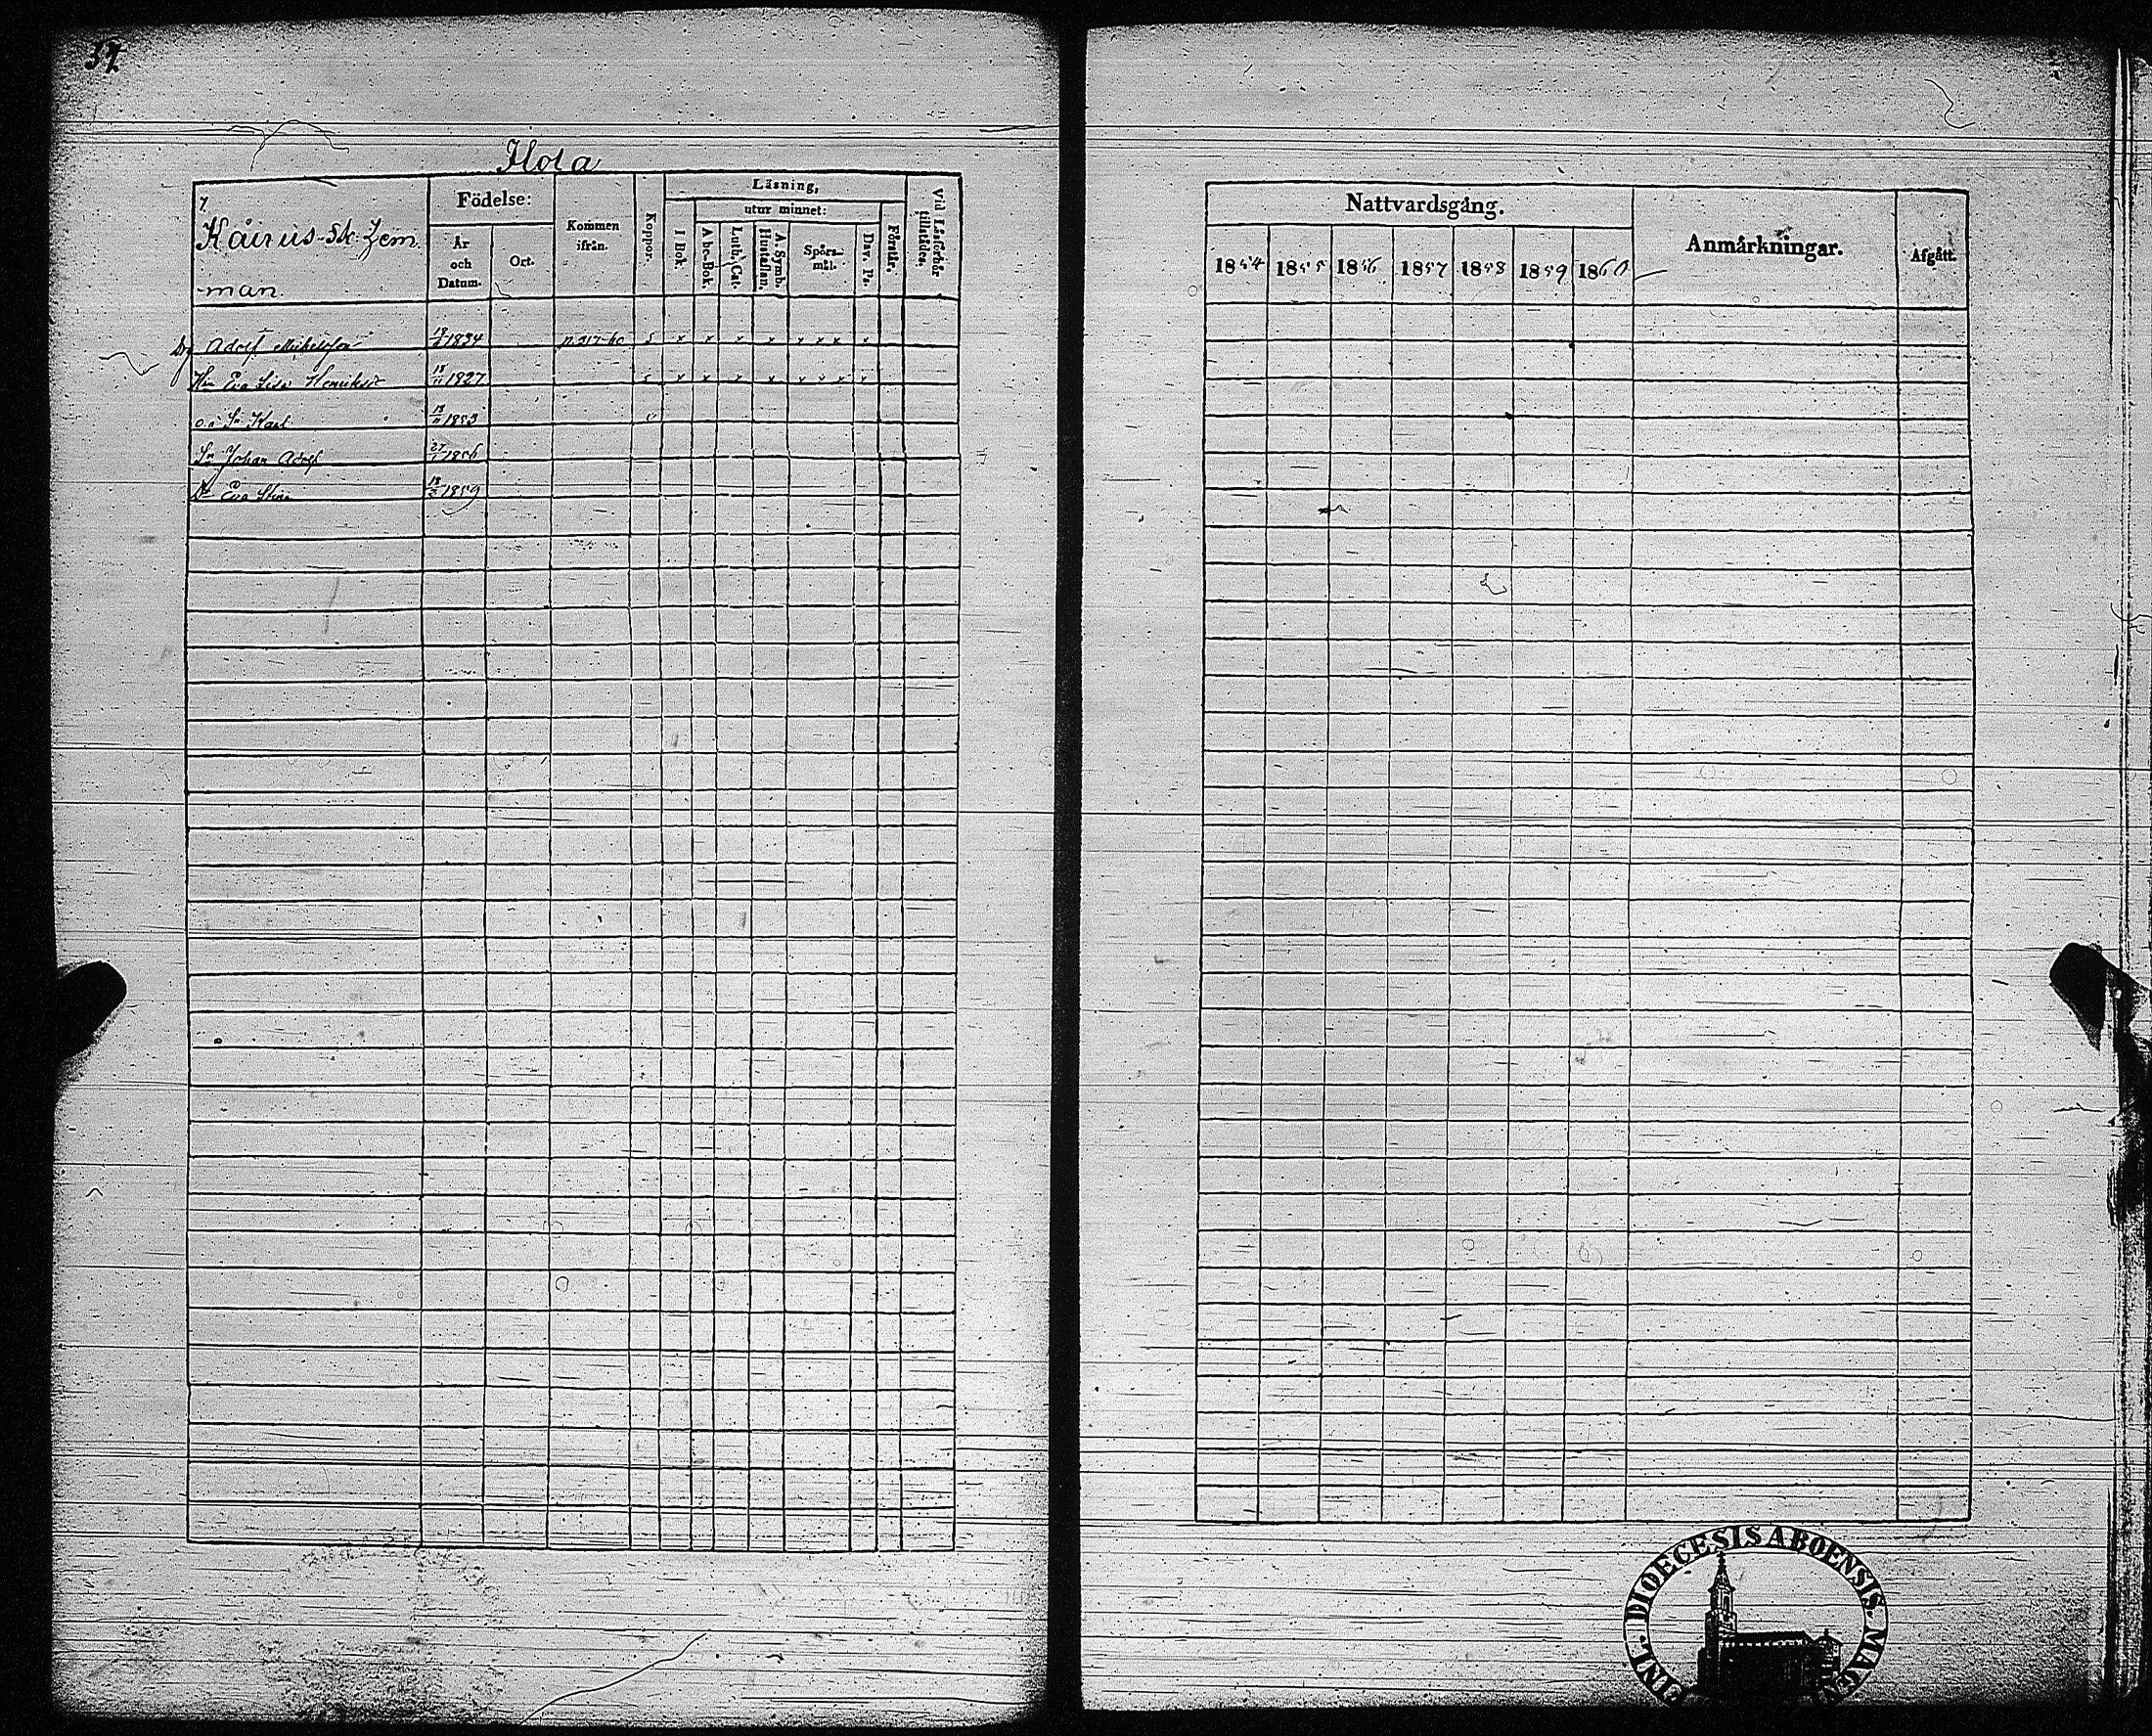 37.
Ilola
7.
Kairus-Sk: Zem
-man.
Födelse:
År och Datum.
Ort.
Kommen ifrån.
Koppor.
Läsning,
I Bok.
utur minnet:
A bc-Bok.
Luth. Cat.
A. Symb. Hustaflan.
Spörs-mål.
Dav. Ps.
Förstår.
Vid Läsförhör tillstädes.
Adolf Mikelsson 1834 n.317-60 s x x x x x x x x
Hu Eva Lisa Henriksd 18/11 1827 s x x x x x x x x
o.ä Sn Karl 1853 v
Sn Johan Adolf 27/1 1856
Dr Eva Stina 18/3 1859
Nattvardsgång.
1854 1855 1856 1857 1858 1859 1860
Anmärkningar.
Afgått.
FINL. DIOECESIS ABOENSIS. MAGN